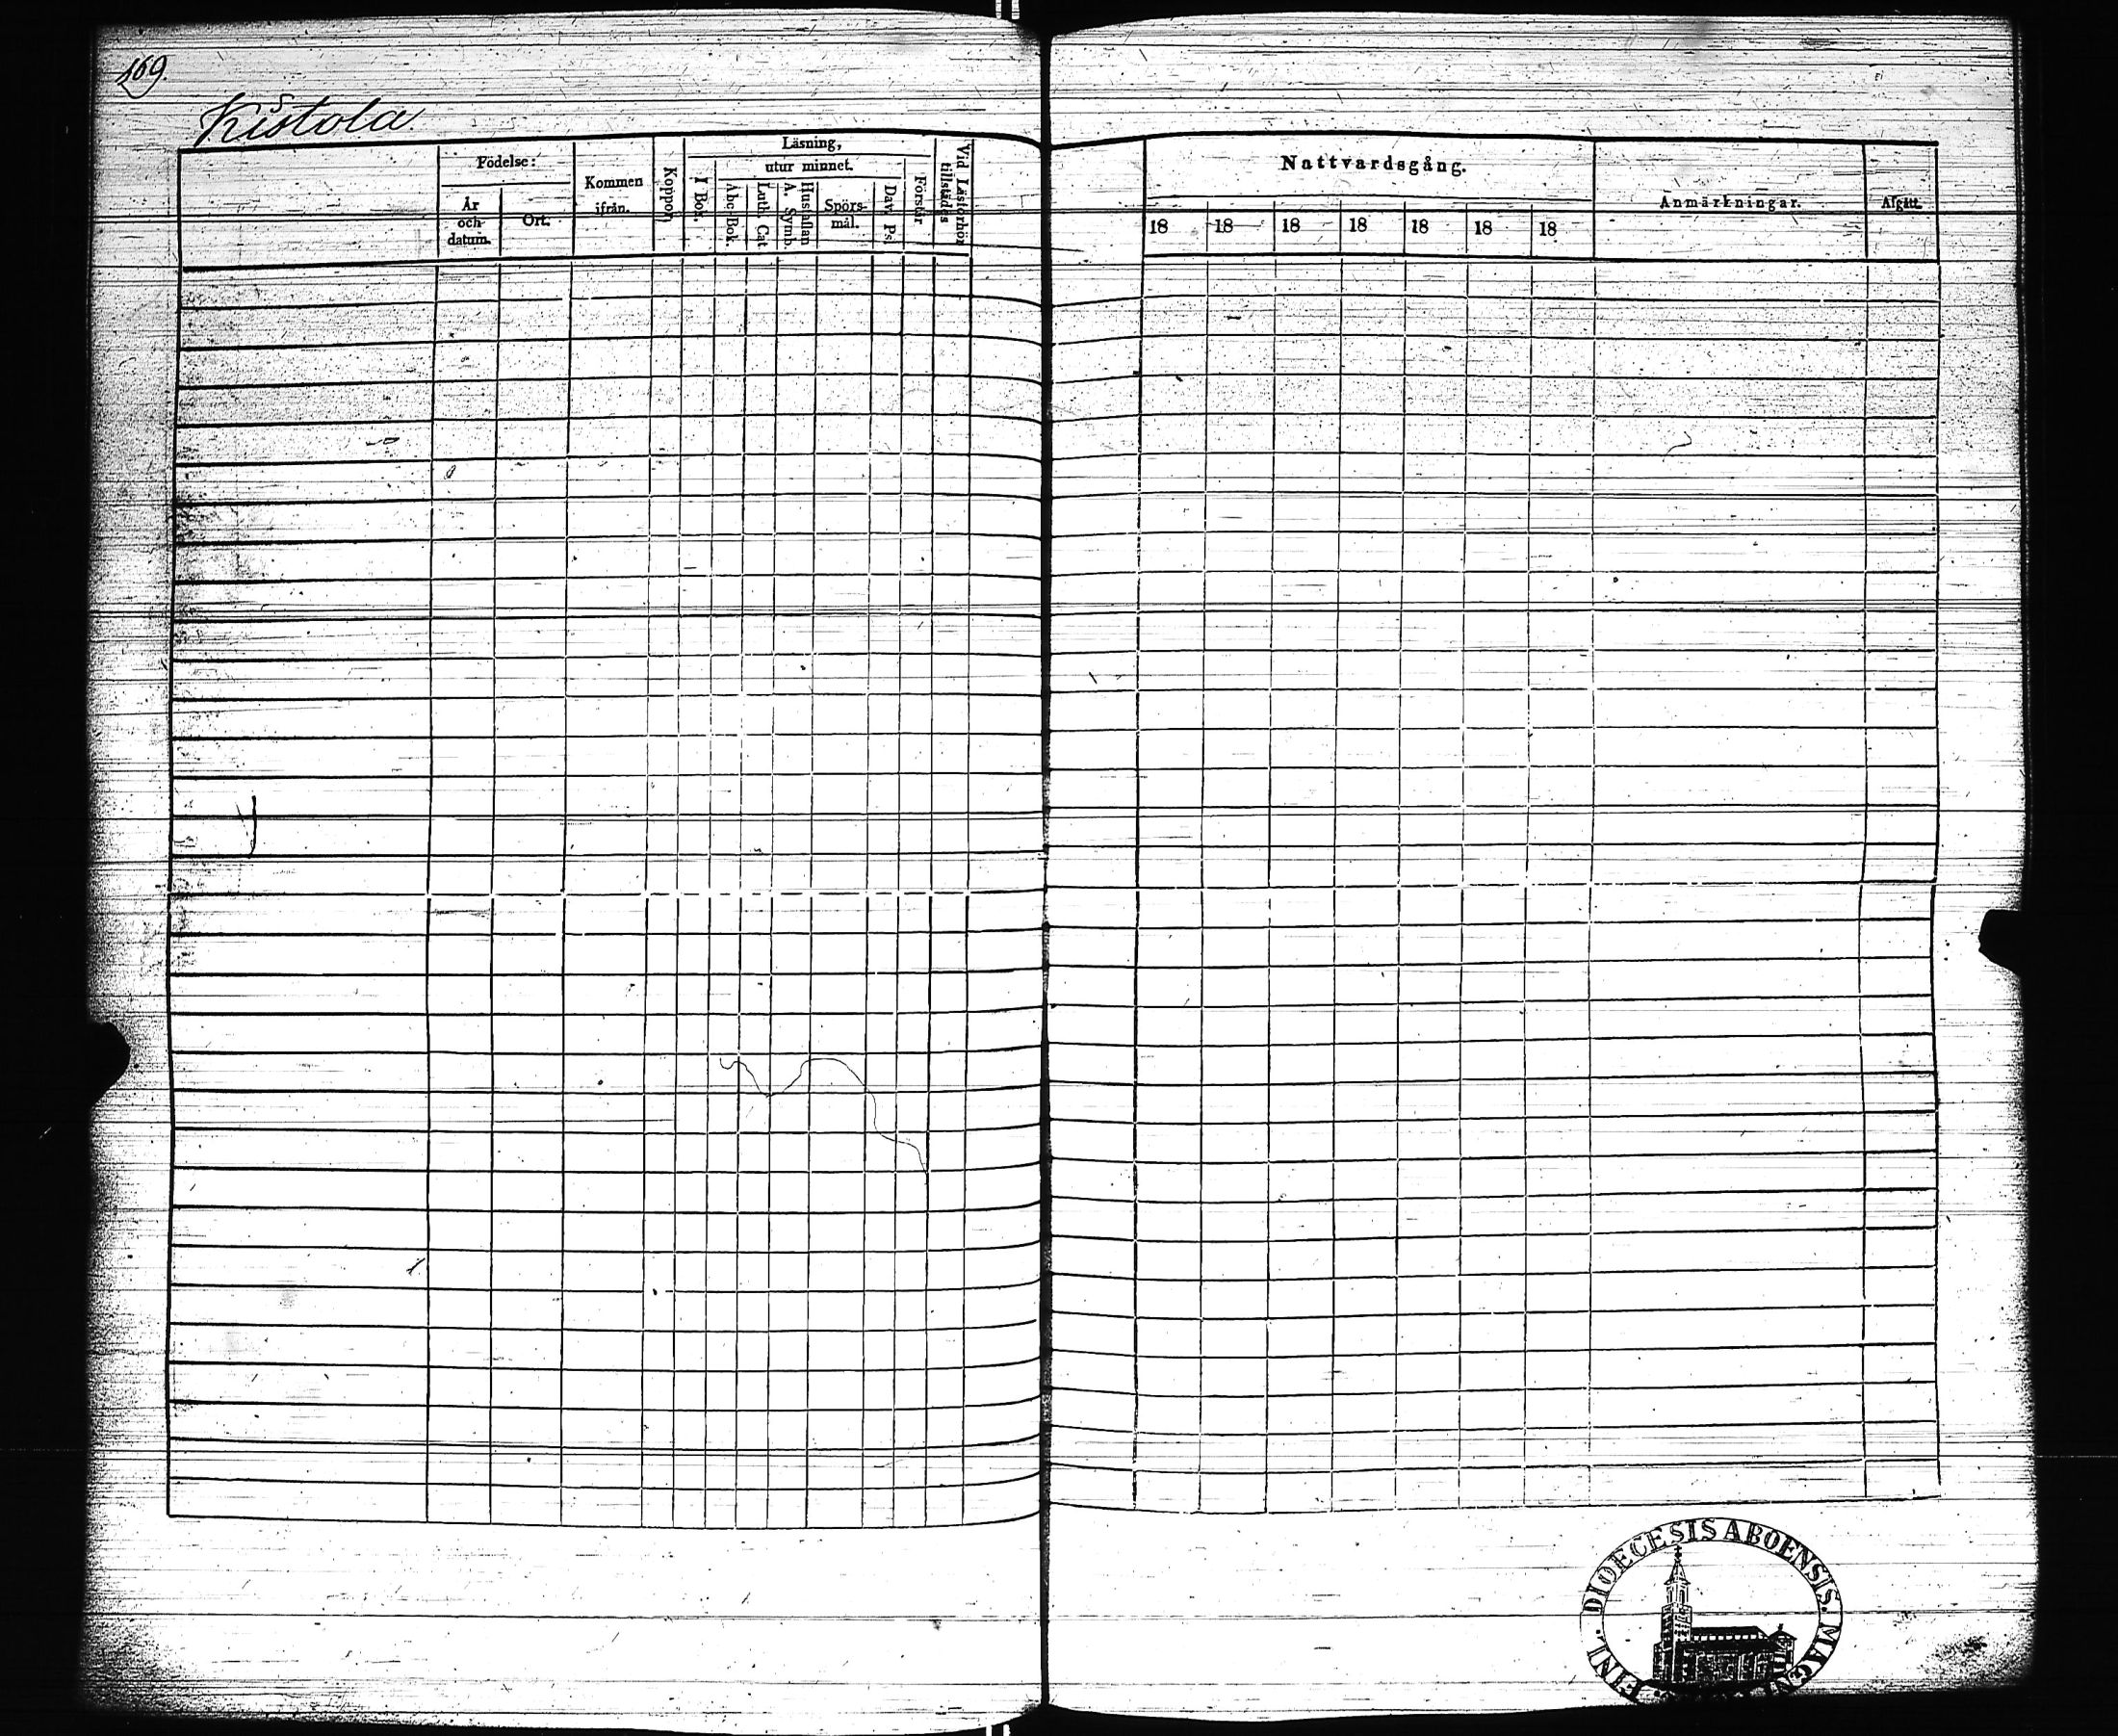 169
Kistola
Födelse:
År och datum.
Ort.
Kommen ifrån.
Koppor
Läsning,
I Bok.
utur minnet.
Abc Bok.
Luth. Cat
A. Symb.
Spörs-mål.
Dav. Ps.
Förstår
Vid Läsförhör tillstädes
Nattvardsgång.
18 18 18 18 18 18 18
Anmärkningar.
Afgått.
DIOECESIS ABOENSIS. MAGNI
FINL.